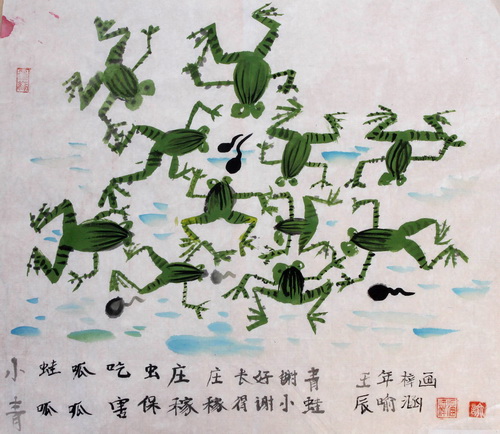 小青
蛙呱
呱呱
吃害
虫保
庄稼
庄稼
长得
好谢
谢小
青蛙
壬辰
年喻
梓涵
画